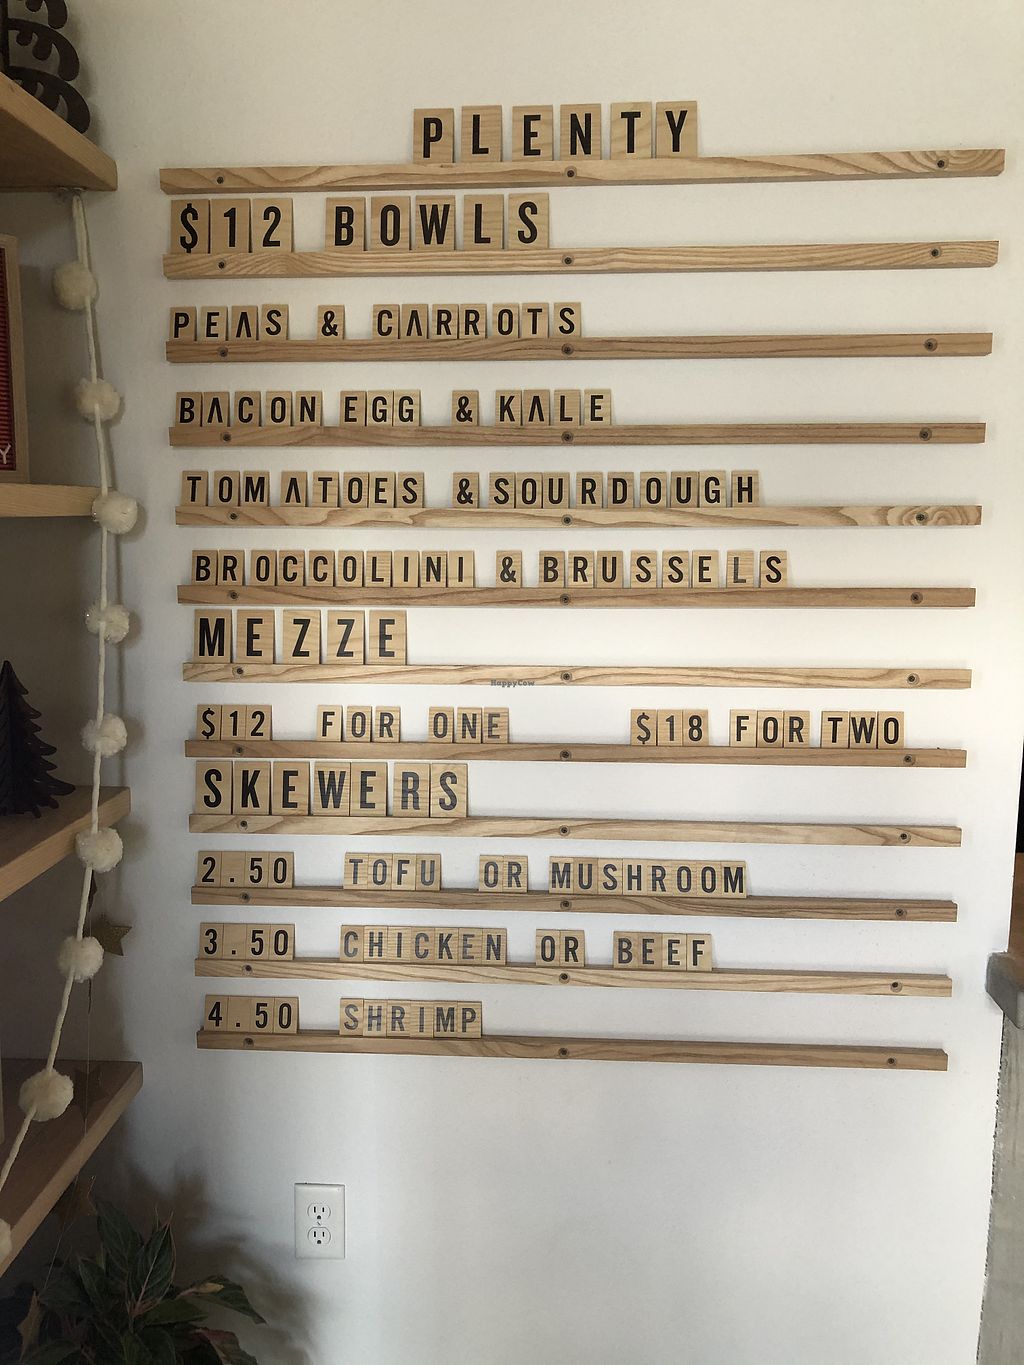 PLENTY
$12 BOWLS
PEAS & CARROTS
BACON EGG & KALE
TOMATOES & SOURDOUGH
BROCCOLINI & BRUSSELS
MEZZE
HappyCow
$12 FOR ONE $18 FOR TWO
SKEWERS
2.50 TOFU OR MUSHROOM
3.50 CHICKEN OR BEEF
4.50 SHRIMP
Y